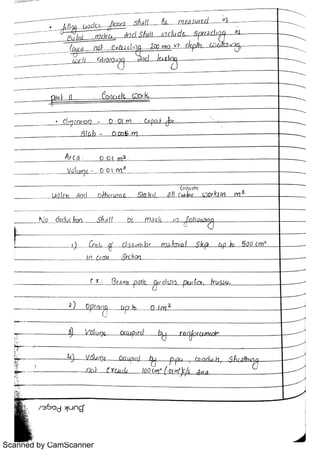 filling under floors shall be measured in
cubic metres and shall include spreading in
layers not exceeding 200 mm in depth, watering
well ramming and leveling
Part II Concrete Work
• dimension - 0.01 m Except for
Slab - 0.005 m
Area 0.01 m2
Volume - 0.01 m3
Unless And otherwise Stated, all concrete work in m3
No deduction shall be made in following
1) Ends of dissimilar material Skp up to 500 cm2
in cross Section
ex: Beams, posts, girders, purlin, trusses
2) Opening up to 0.1m2
3) Volume occupied by reinforcement
4) Volume Occupied by pipe, conduits, Sheathing
not exceed 100 cm2 (.01m2) area
Bunk Pages
Scanned by CamScanner